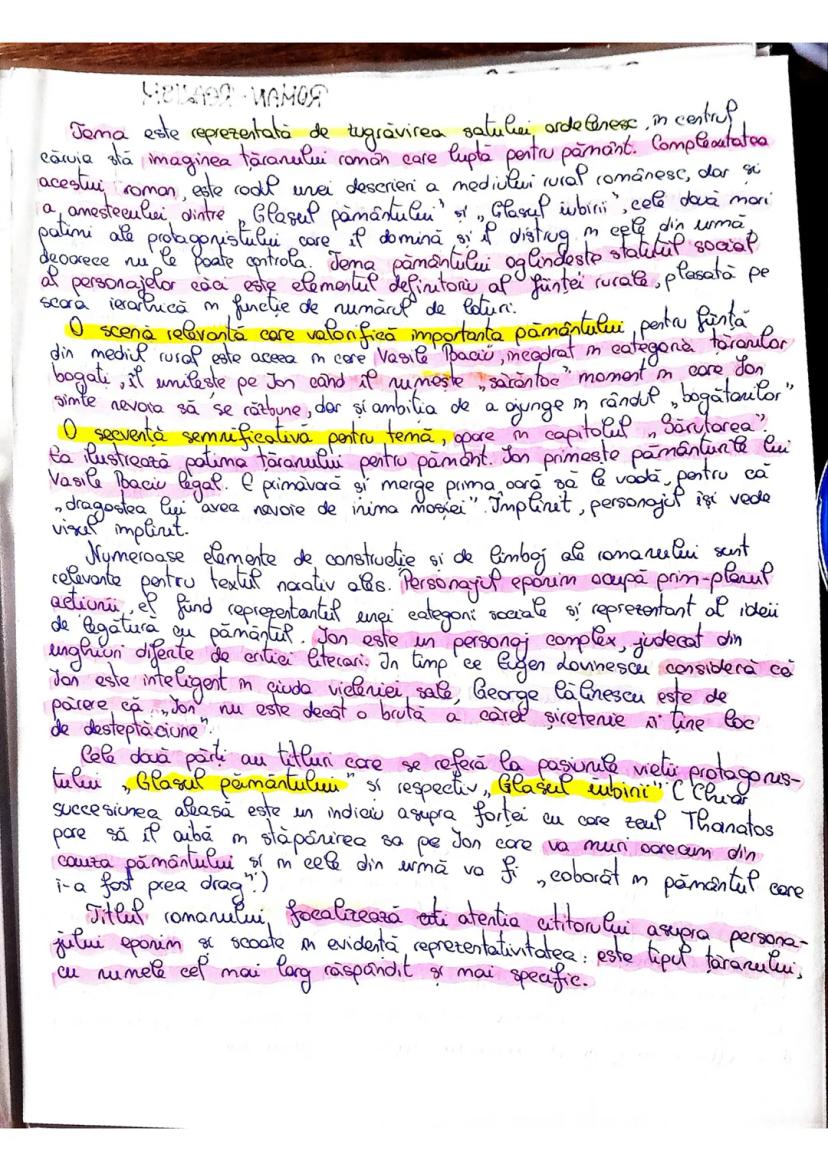 ROMAN-REALISM
Tema este reprezentată de zugrăvirea satului ardelenesc, în centrul
căruia stă imaginea țăranului român care luptă pentru pământ. Complexitatea
acestui roman, este rodul unei descrieri a mediului rural românesc, dar și
a amestecului dintre „Glasul pământului" și „Glasul iubirii", cele două mari
patimi ale protagonistului care îl domină și îl distrug în cele din urmă,
deoarece nu le poate controla. Tema pământului oglindește statutul social
al personajelor căci este elementul definitoriu al ființei rurale, plasată pe
scara ierarhică în funcție de numărul de loturi.
O scenă relevantă care valorifică importanța pământului, pentru ființa
din mediul rural este aceea în care Vasile Baciu, încadrat în categoria țăranilor
bogați, îl umilește pe Ion când îl numește „sărăntoc" moment în care Ion
simte nevoia să se răzbune, dar și ambiția de a ajunge în rândul „bogătanilor"
O secvență semnificativă pentru temă, apare în capitolul „Sărutarea".
Ea ilustrează patima țăranului pentru pământ. Ion primește pământurile lui
Vasile Baciu legal. E primăvară și merge prima oară să le vadă, pentru că
„dragostea lui avea nevoie de inima moșiei". Împlinit, personajul își vede
visul împlinit.
Numeroase elemente de construcție și de limbaj ale romanului sunt
relevante pentru textul narativ ales. Personajul eponim ocupă prim-planul
acțiunii, el fiind reprezentantul unei categorii sociale și reprezentant al ideii
de legătură cu pământul. Ion este un personaj complex, judecat din
unghiuri diferite de criticii literari. În timp ce Eugen Lovinescu consideră că
Ion este inteligent în ciuda vicleniei sale, George Călinescu este de
părere că „Ion" nu este decât o brută a cărei șiretenie îi ține loc
de deșteptăciune".
Cele două părți au titluri care se referă la pasiunile vieții protagonis-
tului „Glasul pământului" și respectiv „Glasul iubirii" (Chiar
succesiunea aleasă este un indiciu asupra forței cu care zeul Thanatos
pare să îl aibă în stăpânirea sa pe Ion care va muri oarecum din
cauza pământului și în cele din urmă va fi „coborât în pământul care
i-a fost prea drag".)
Titlul romanului, focalizează atenția cititorului asupra persona-
jului eponim și scoate în evidență reprezentativitatea: este tipul țăranului,
cu numele cel mai larg răspândit și mai specific.